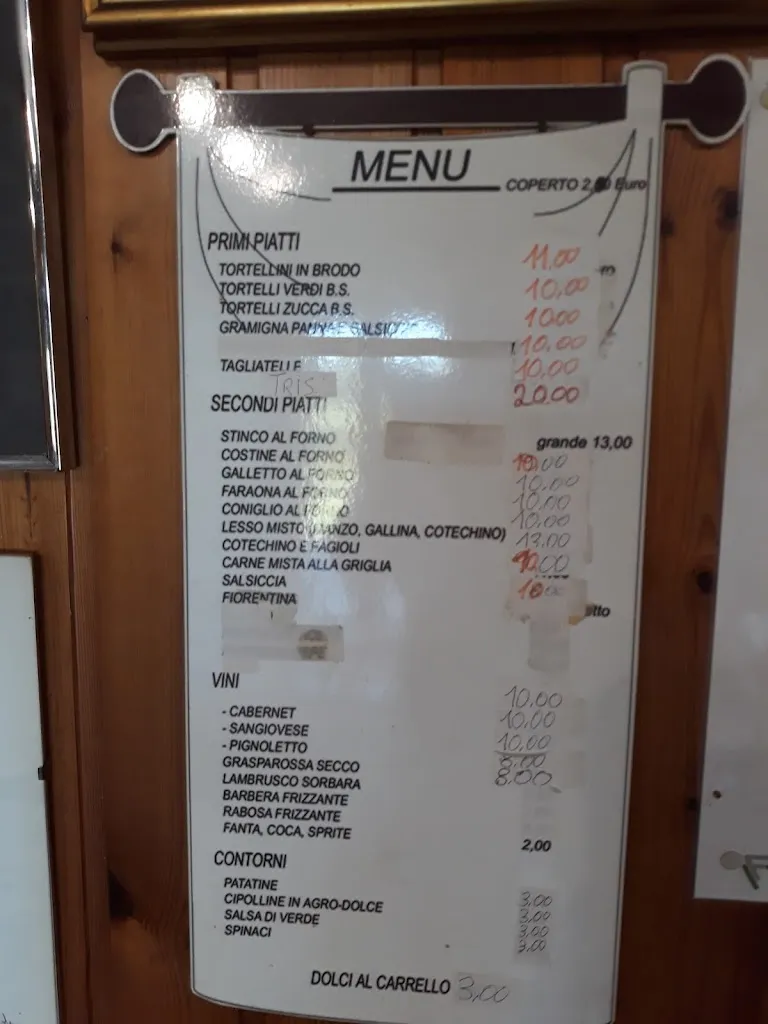 MENU
COPERTO 2, 0 Euro
PRIMI PIATTI
TORTELLINI IN BRODO 11,00
TORTELLI VERDI B.S. 10,00
TORTELLI ZUCCA B.S. 10,00
GRAMIGNA PANNA E SALSICCIA 10,00
TAGLIATELLE 10,00
TRIS 20,00
SECONDI PIATTI
STINCO AL FORNO grande 13,00
COSTINE AL FORNO 10,00
GALLETTO AL FORNO 10,00
FARAONA AL FORNO 10,00
CONIGLIO AL FORNO 10,00
LESSO MISTO (MANZO, GALLINA, COTECHINO) 13,00
COTECHINO E FAGIOLI
CARNE MISTA ALLA GRIGLIA
SALSICCIA 10,00
FIORENTINA etto
VINI
- CABERNET 10,00
- SANGIOVESE 10,00
- PIGNOLETTO 10,00
GRASPAROSSA SECCO 8,00
LAMBRUSCO SORBARA 8,00
BARBERA FRIZZANTE
RABOSA FRIZZANTE
FANTA, COCA, SPRITE 2,00
CONTORNI
PATATINE 3,00
CIPOLLINE IN AGRO-DOLCE 3,00
SALSA DI VERDE 3,00
SPINACI 3,00
DOLCI AL CARRELLO 3,00